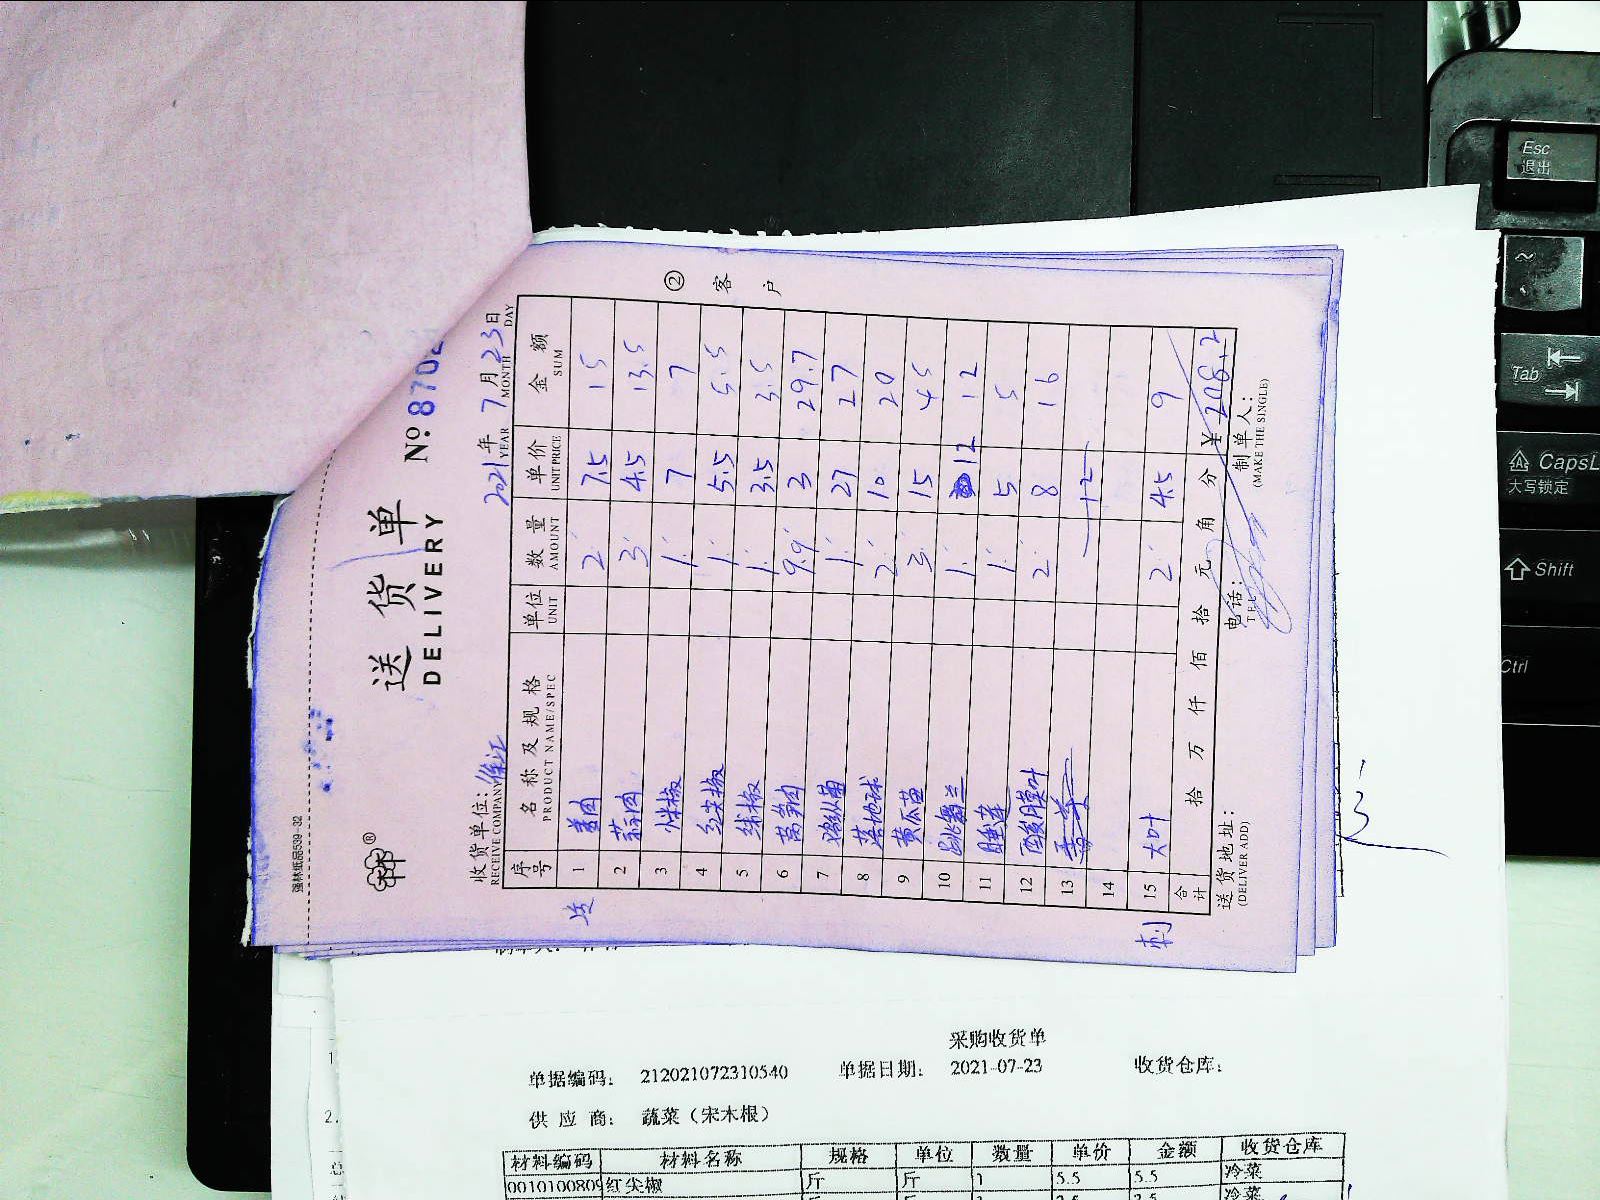 强林纸品539-32
送货单
DELIVERY
No. 8702
收货单位:
RECEIVE COMPANY
2021年 7月 23日
YEAR MONTH DAY
② 客户
序号 名称及规格 单位 数量 单价 金额
PRODUCT NAME/SPEC UNIT AMOUNT UNIT PRICE SUM
1 2 7.5 15
2 3 4.5 13.5
3 1 7 7
4 红尖椒 1 5.5 5.5
5 线椒 1 3.5 3.5
6 9.9 3 29.7
7 鸡纵菌 1 27 27
8 2 10 20
9 黄瓜苗 3 15 45
10 1 12 12
11 睡莲 1 5 5
12 酸膜叶 2 8 16
13 12
14
15 大叶 2 4.5 9
刺
合计 拾 万 仟 佰 拾 元 角 分 ¥ 206.2
送货地址: 电话: 制单人:
(DELIVER ADD) TEL (MAKE THE SINGLE)
采购收货单
单据编码: 212021072310540 单据日期: 2021-07-23 收货仓库:
供应商: 蔬菜(宋木根)
材料编码 材料名称 规格 单位 数量 单价 金额 收货仓库
0010100809 红尖椒 斤 斤 1 5.5 5.5 冷菜
Esc
退出
~
Tab
CapsL
大写锁定
Shift
Ctrl